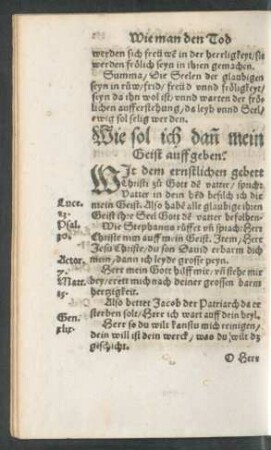 Wie man den Tod
werden sich freüwē in der herrligkeyt, sie
werden frölich seyn in ihren gemachen.
Summa, Die Seelen der glaubigen
seyn in rüw/frid/freüd vnnd fröligkeyt/
seyn da ihn wol ist/vnnd warten der frö
lichen aufferstehung/da leyb vnnd Seel/
ewig sol selig werden.
Wie sol ich dañ mein
Geist auffgeben?
Mit dem ernstlichen gebett
Christi zů Gott dē vatter/spricht:
Vatter in dein hēd befilch ich die
mein Geist. Also habē alle glaubige ihren
Geist ihre Seel Gott dē vatter befolhen.
Luce.
23.
Wie Stephanus rüffet vñ sprach: Herr
Psal.
30.
Christe nim auff mein Geyst. Item/Herr
Jesu Christe/du son Dauid erbarm dich
mein/dann ich leyde grosse peyn.
Actor.
7.
Herr mein Gott hilff mir/vñ stehe mir
Matt.
15.
bey/errett mich nach deiner grossen barm
hertzigkeit.
Also bettet Jacob der Patriarch da er
Gen.
xlix.
sterben solt/Herr ich wart auff dein heyl.
Herr so du wilt kanstu mich reinigen/
dein will ist dein werck/was du wilt dz
geschicht.
O Herr